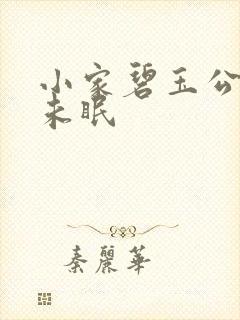 小家碧玉公
未眠
秦麗華